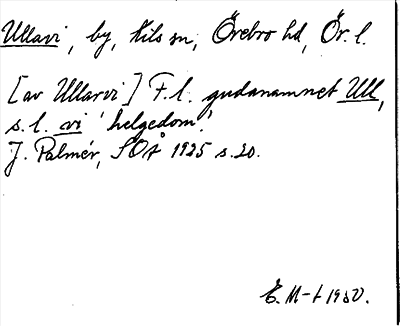 Ullavi, by, Kils sn, Örebro hd, Ör. l.
[av Ullarvi] F.l. gudanamnet Ull,
s.l. vi 'helgedom'.
J. Palmér, SOÅ 1925 s. 20.
E. M-t 1930.